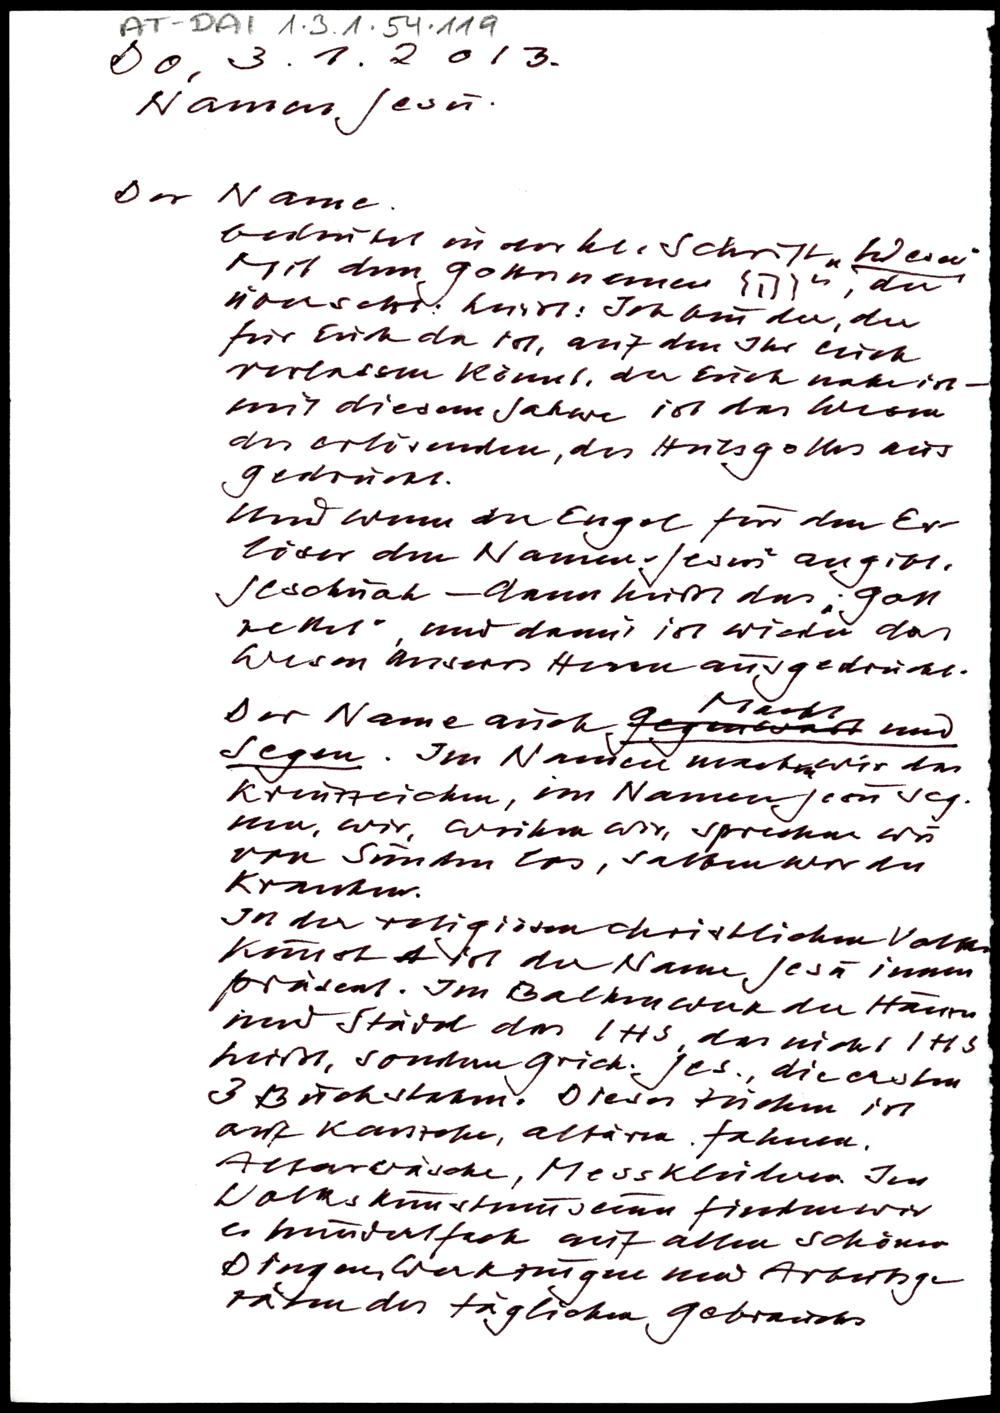 AT-DAI 1.3.1.54.119
Do, 3.1.2013.
Namen Jesu.
Der Name.
bedeutet in der hl. Schrift „Wesen"
Mit dem Gottesnamen , der
übersetzt: heisst: Ich bin der, der
für Euch da ist, auf den Ihr Euch
verlassen könnt, der Euch nahe ist –
mit diesem Jahwe ist das Wesen
des erlösenden, des Heilsgottes aus
gedrückt.
Und wenn der Engel für den Er-
löser den Namen Jesus angibt.
Jeschuah – dann heißt das: „Gott
rettet", und damit ist wieder das
Wesen unseres Herrn ausgedrückt.
Macht
Der Name auch Gegenwart und
Segen. Im Namen machen wir das
Kreuzzeichen, im Namen Jesu seg-
nen, wir, weihen wir, sprechen wir
von Sünden los, salben wir die
Kranken.
In der religiösen christlichen Volks
kunst ist der Name Jesu immer
präsent. Im Balkenwerk der Häuser
und Städel das IHS, das nicht IHS
heißt, sondern Griech. Jes., die ersten
3 Buchstaben. Dieses Zeichen ist
auf Kelche, Altären, Fahnen,
Altarwäsche, Messkleidern. Im
Volkskunstmuseum finden wir
es hundertfach auf allen schönen
Dingen, Werkzeugen und Arbeitsge
räten des täglichen Gebrauchs